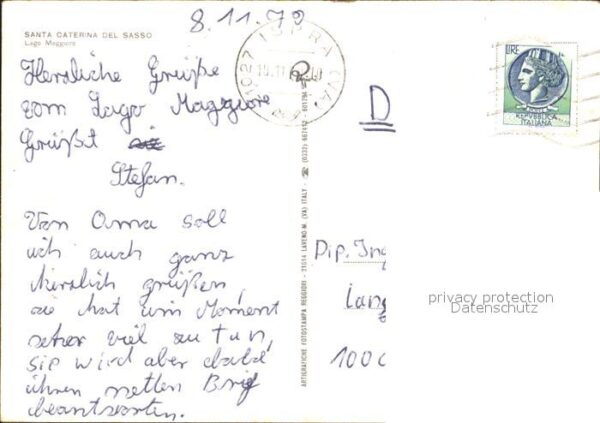 8.11.79
SANTA CATERINA DEL SASSO
Lago Maggiore
Herzliche Grüße
vom Lago Maggiore
Grüßt
Stefan.
Von Oma soll
ich auch ganz
herzlich grüßen,
sie hat im Moment
sehr viel zu tun,
sie wird aber bald
ihren netten Brief
beantworten.
21027 ISPRA (VA)
ARTIGRAFICHE FOTOSTAMPA REGGIORI - 21014 LAVENO M. (VA) ITALY - ☎ (0332) 667412
D
LIRE
REPVBBLICA
ITALIANA
Dip. Ing
Lang
100
privacy protection
Datenschutz